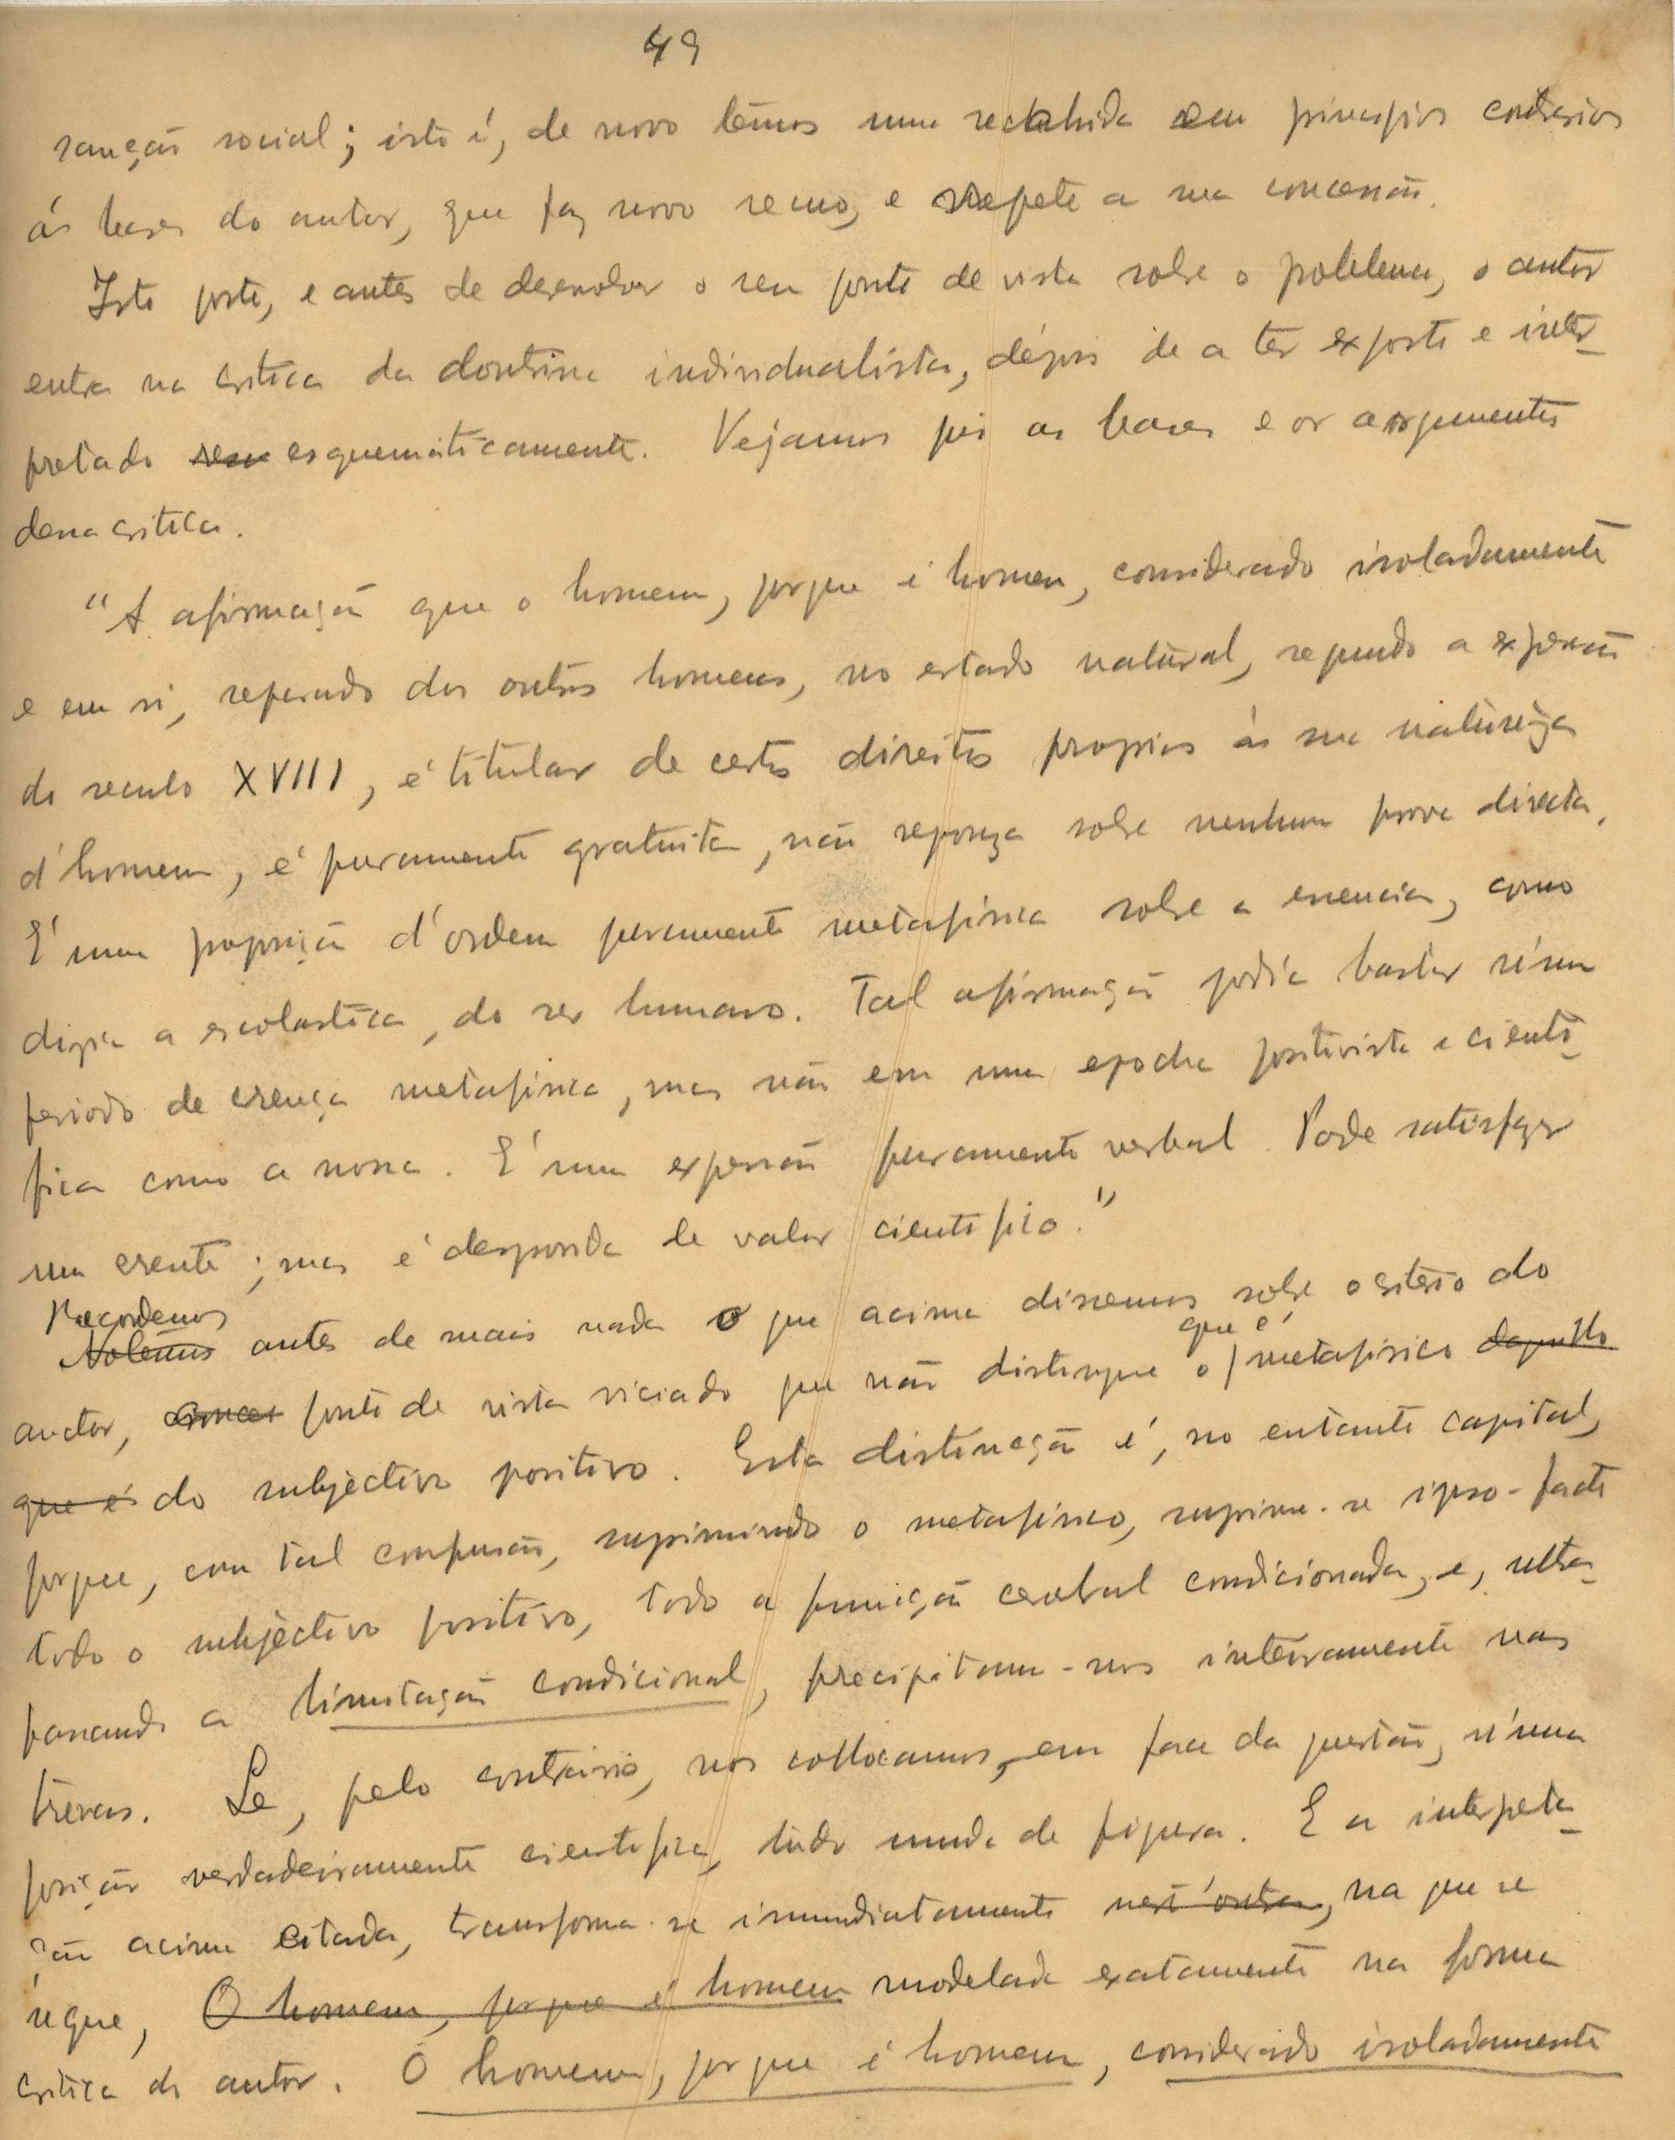 49
sanção social; isto é, de novo têmos uma recahida em principios contrarios
ás bases do autor, que faz novo recuo, e repete a sua concessão.
Isto posto, e antes de desenvolver o seu ponto de vista sobre o problema, o autor
entra na critica da doutrina individualista, depois de a ter exposto e inter-
pretado esquematicamente. Vejamos pois as bases e os argumentos
dessa critica.
"A afirmação que o homem, porque é homem, considerado isoladamente
e em si, separado dos outros homens, no estado natural, segundo a expressão
do seculo XVIII, é titular de certos direitos proprios á sua naturêza
d'homem, é puramente gratuita, não repousa sobre nenhuma prova directa.
E' uma proposição d'ordem puramente metafisica sobre a essencia, como
dizia a escolastica, do ser humano. Tal afirmação podia bastar n'um
periodo de crença metafisica, mas não em uma epocha positivista e cienti-
fica como a nossa. E' uma expressão puramente verbal. Pode satisfazer
um crente; mas é desprovida de valor cientifico."
Recordemos
Notêmos antes de mais nada o que acima dissemos sobre o criterio do
que é
auctor, ponto de vista viciado que não distingue o metafisico daquillo
que é do subjectivo positivo. Esta distincção é, no entanto capital,
porque, com tal confusão, suprimindo o metafisico, suprime-se ipso-facto
todo o subjectivo positivo, todo a funcção cerebral condicionada, e, ultra-
passando a limitação condicional, precipitam-nos inteiramente nas
trevas. Se, pelo contrário, nos collocamos, em face da questão, n'uma
posição verdadeiramente cientifica, tudo muda de figura. E a interpeta-
ção acima citada, transforma-se immediatamente nest'outra, na que se
segue, O homem, porque é homem modelada exatamente na forma
critica do autor. O homem, porque é homem, considerado isoladamente